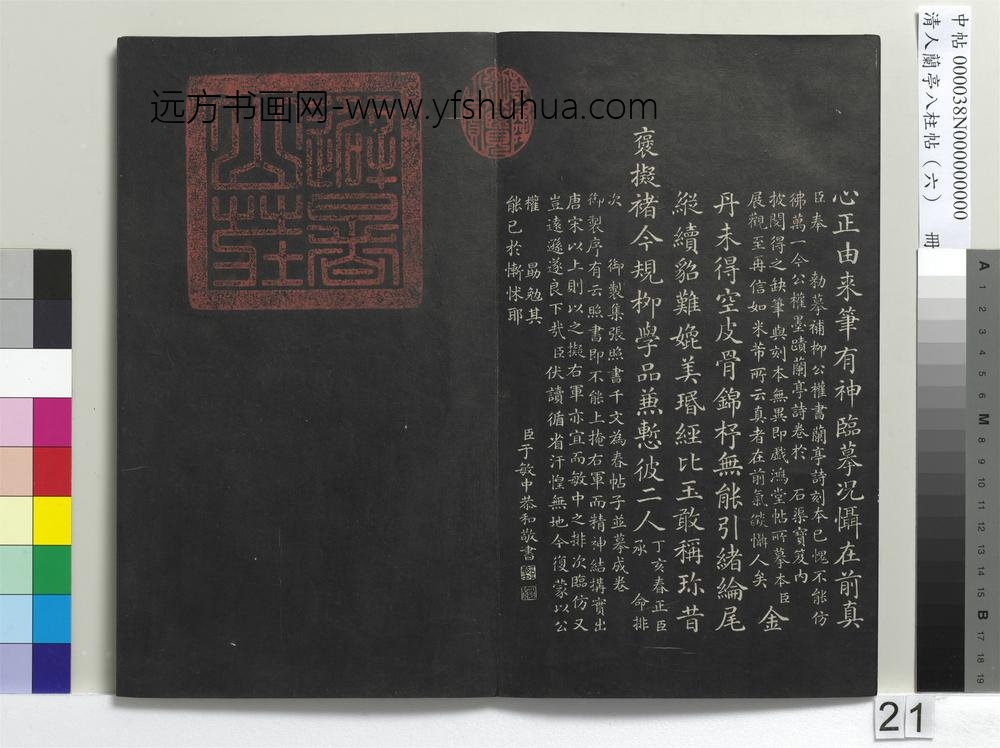 远方书画网-www.yfshuhua.com
中帖 000038N000000000
清人蘭亭八柱帖（六） 冊
心正由来筆有神臨摹况懾在前真
臣奉 勅摹補柳公權書蘭亭詩刻本已愧不能仿
彿萬一今公權墨蹟蘭亭詩卷於 石渠寶笈内
披閱得之缺筆與刻本無異即戲鴻堂帖所摹本臣
展觀至再信如米芾所云真者在前氣燄懾人矣 金
丹未得空皮骨錦杼無能引緒綸尾
縱續貂難媲美瑉經比玉敢稱珎昔
褒擬褚今規柳學品蕪慙彼二人 丁亥春正臣
承 命排
次 御製集張照書千文為春帖子並摹成卷
御製序有云照書即不能上掩右軍而精神結搆實出
唐宋以上則以之擬右軍亦宜而敏中之排次臨仿又
豈遠遜遂良下哉臣伏讀循省汗惶無地今復蒙以公
權 勗勉其
能已於慚怵耶
臣于敏中恭和敬書
避暑山莊
A 1 2 3 4 5 6 M 8 9 10 11 12 13 14 15 B 17 18 19
21